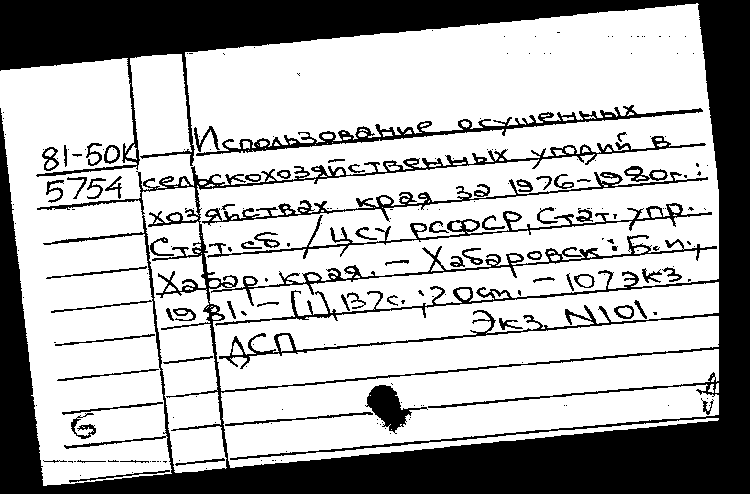 Использование осушенных
81-50К
сельскохозяйственных угодий в
5754
хозяйствах края за 1976-1980г.:
Стат. сб. / ЦСУ РСФСР, Стат. упр.
Хабар. края. - Хабаровск: Б.и.,
1981. - [1], 137с.; 20см. - 107экз.
ДСП Экз. N101.
Б